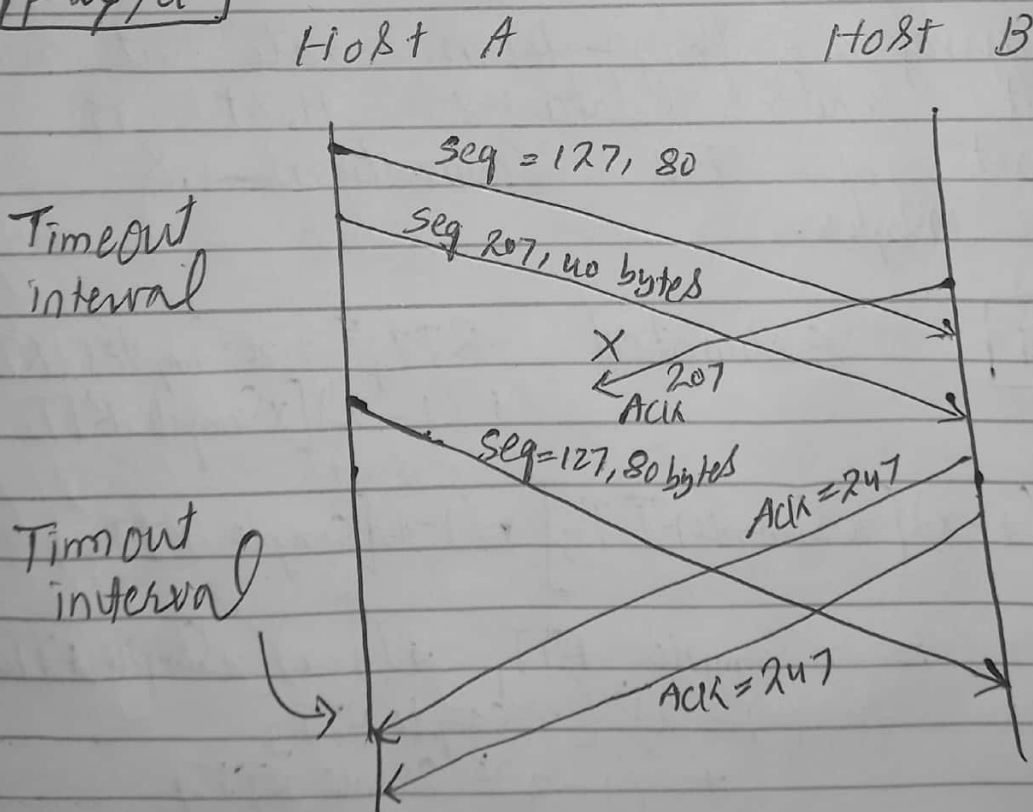 Host A Host B
Seq = 127, 80
Timeout
interval
Seq 207, 40 bytes
X
207
Ack
Seq=127, 80 bytes
Ack = 247
Timout
interval
Ack = 247